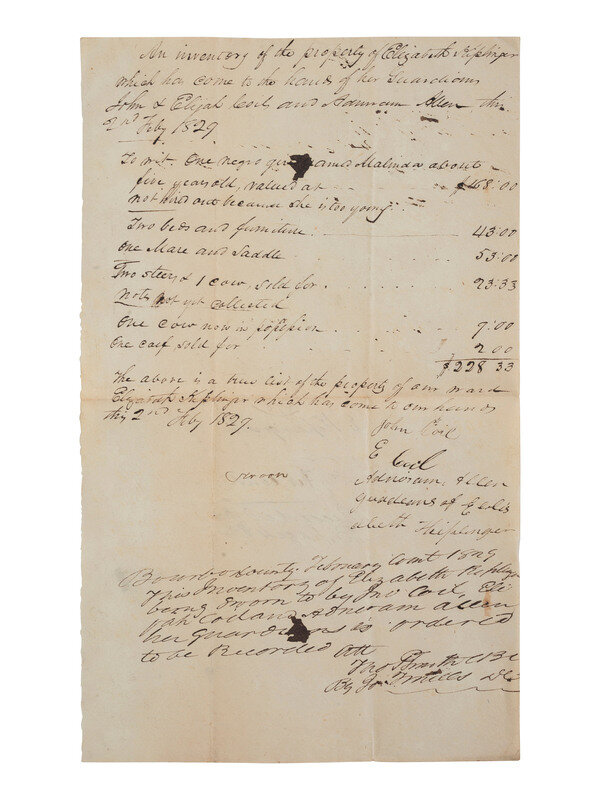 An inventory of the property of Elizabeth Kesslinger
which has come to the hands of her Guardians
John & Elijah Coil and Adnoram Allen this
2nd Feby 1829
To wit, One negro named Malinda about
five years old, valued at $ 00
not hired out because she is too young
Two beds and furniture 43.00
One Mare and Saddle 53.00
Two steers & 1 cow, sold for 23.33
Note not yet collected
One cow now in possession 9.00
One calf sold for 2.00
$228 33
The above is a true list of the property of our ward
Elizabeth which has come to our hands
this 2nd Feby 1829.
John Coil
E Coil
Adnoram Allen
guardians of Eliz
abeth
sworn
Bourbon County February Court 1829
This Inventory of Elizabeth
being sworn to by Jno Coil, Eli
jah Coil and Adneram Allen
her Guardians is ordered
to be Recorded Att
Tho P Smith CBC
By Jo Mills DC